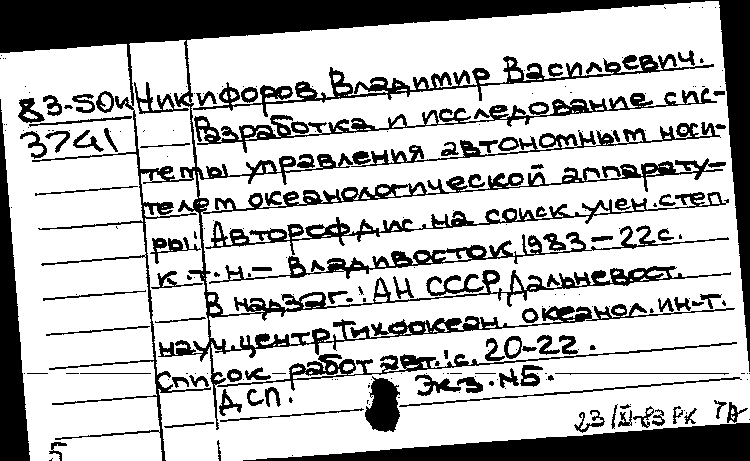 83-5ок Никифоров, Владимир Васильевич.
3741 Разработка и исследование сис-
темы управления автономным носи-
телем океанологической аппарату-
ры: Автореф. дис. на соиск. учен. степ.
к.т.н. – Владивосток, 1983. – 22 с.
В надзаг.: АН СССР, Дальневост.
науч. центр, Тихоокеан. океанол. ин-т.
Список работ авт.: с. 20-22.
ДСП. Экз. №5.
23/XI-83 РК
5